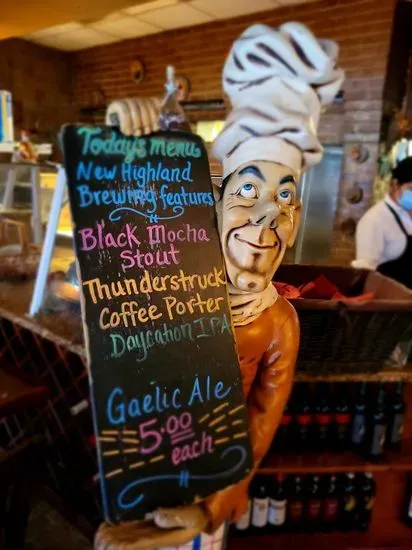 Today's menu
New Highland
Brewing features
Black Mocha
Stout
Thunderstruck
Coffee Porter
Daycation IPA
Gaelic Ale
5.00
each